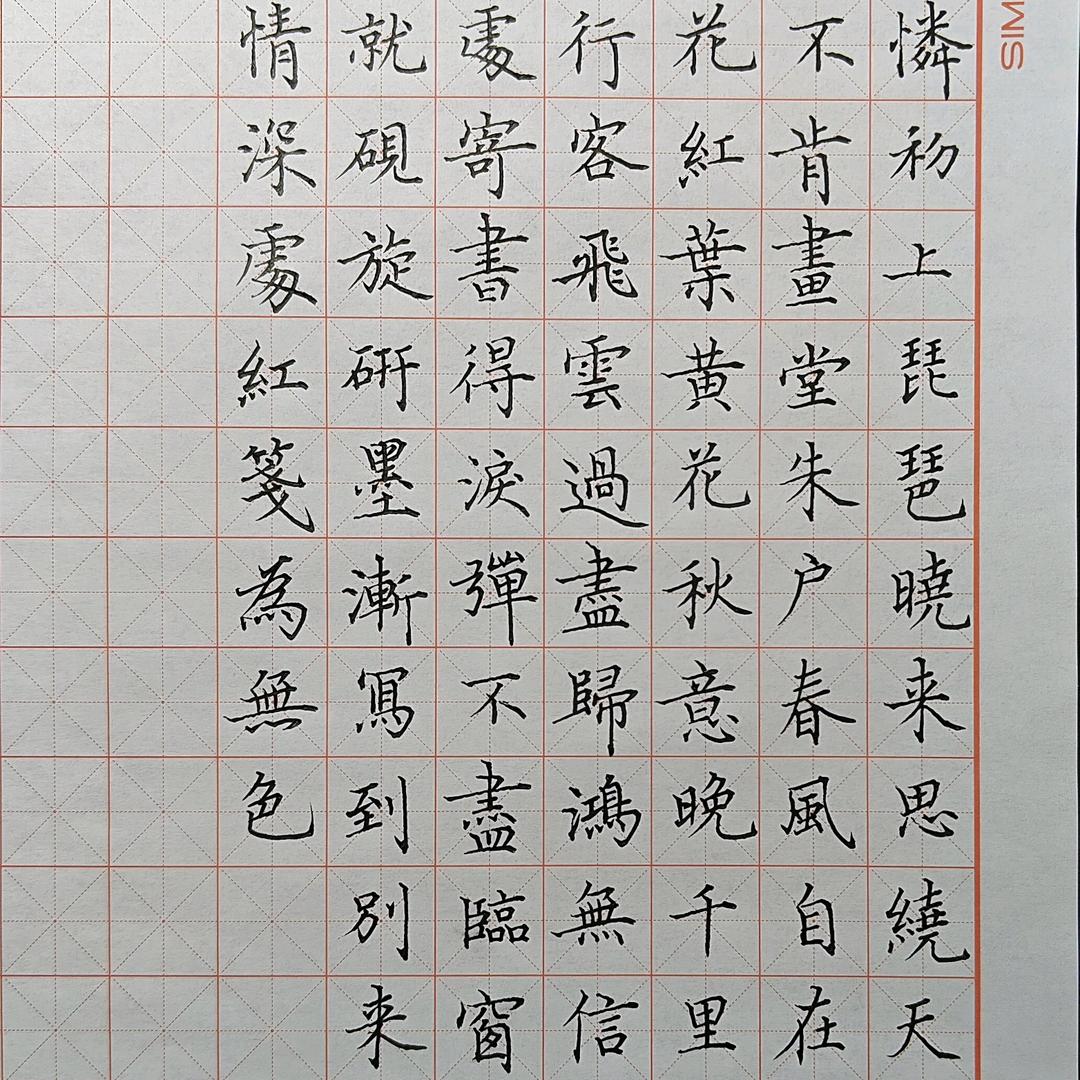 憐初上琵琶曉来思繞天
不肯畫堂朱户春風自在
花紅葉黄花秋意晚千里
行客飛雲過盡歸鴻無信
處寄書得淚彈不盡臨窗
就硯旋研墨漸寫到別来
情深處紅箋為無色